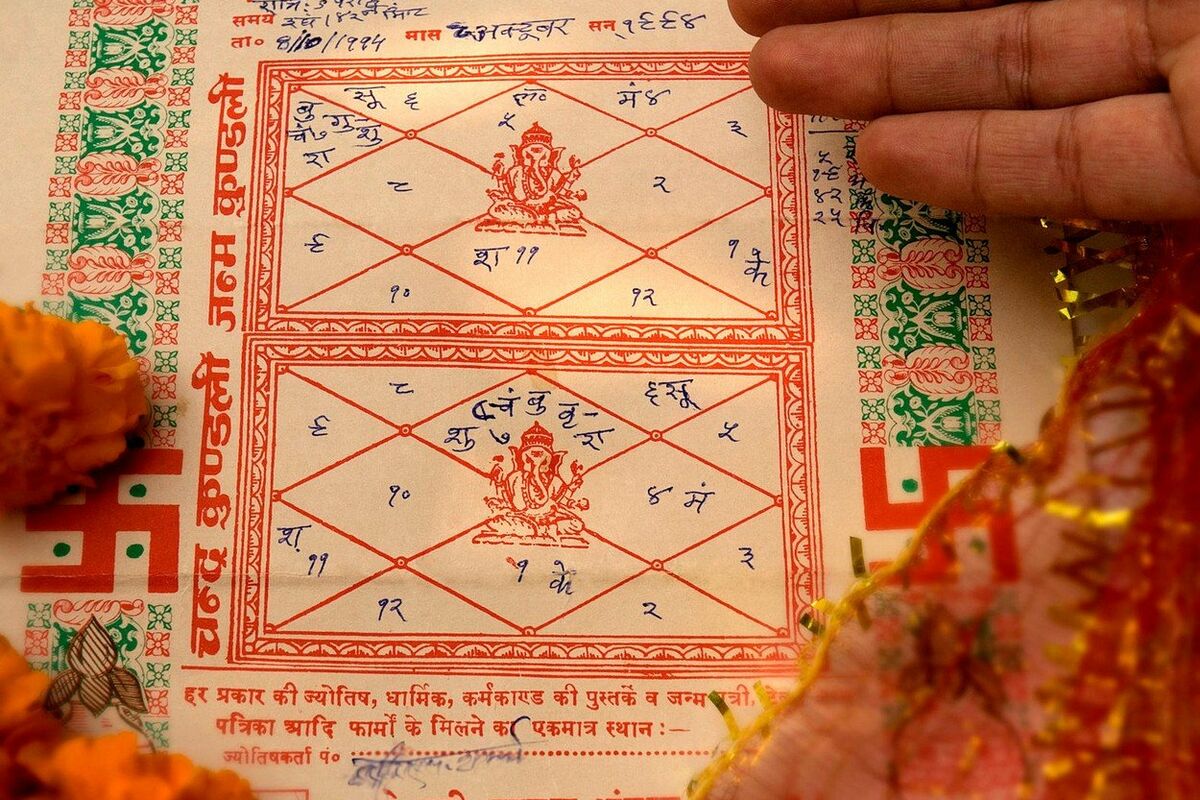 समय
ता० 8/10/1994 मास अक्टूबर सन् १९९४
जन्म कुण्डली
सू ६
बु गु
चं ७ शु
रा
ल०
५
मं ४
३
८
२
९
श ११
१ के
१०
१२
५
१६
४२
२५
चन्द्र कुण्डली
८
चं बु वृ
शु ७ रा
६ सू
९
५
१०
४ मं
श
११
१ के
३
१२
२
हर प्रकार की ज्योतिष, धार्मिक, कर्मकाण्ड की पुस्तकें व जन्म
पत्रिका आदि फार्मों के मिलने का एकमात्र स्थान :—
ज्योतिषकर्ता पं०